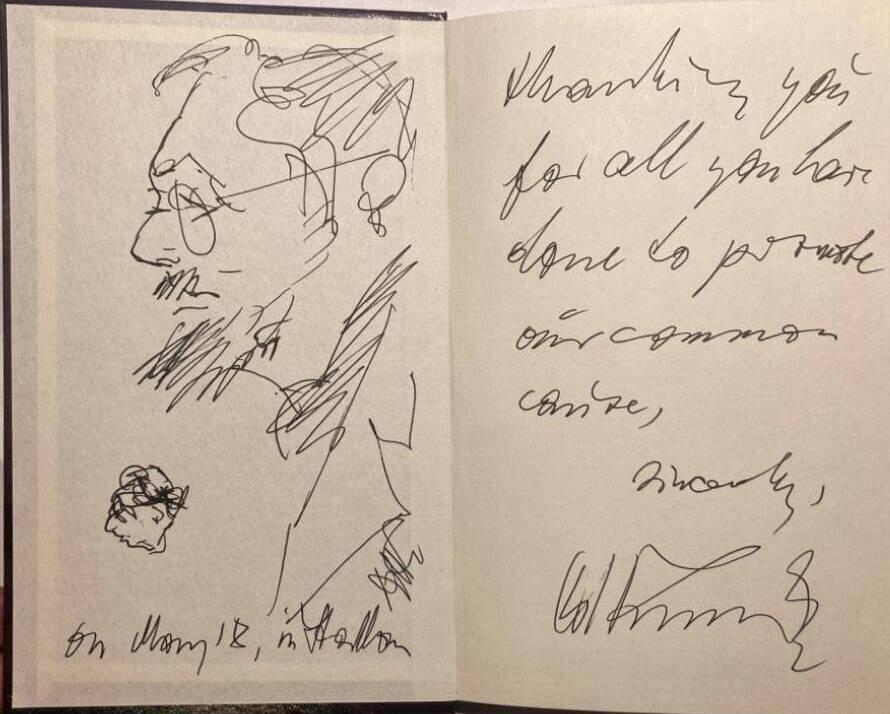 on May 18, in
thanking you
for all you have
done to promote
our common
cause,
sincerely,